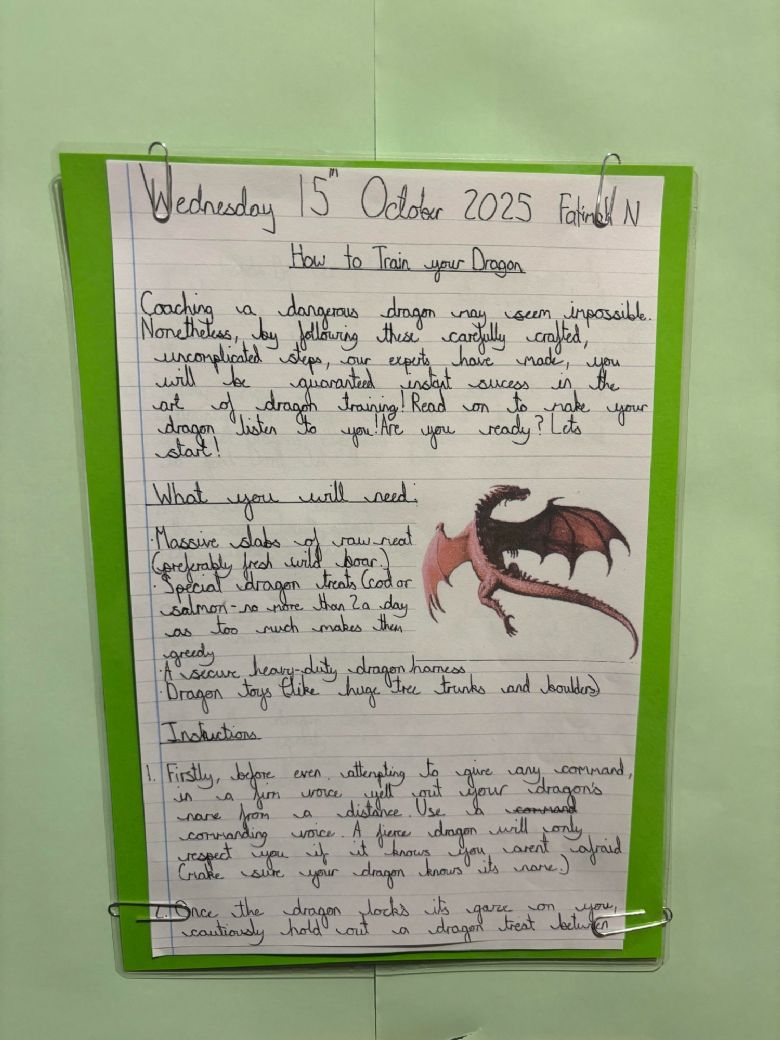 Wednesday 15th October 2025 Fatimah N
How to Train your Dragon
Coaching a dangerous dragon may seem impossible.
Nonetheless, by following these carefully crafted,
uncomplicated steps, our experts have made, you
will be guaranteed instant success in the
art of dragon training! Read on to make your
dragon listen to you! Are you ready? Lets
start!
What you will need:
· Massive slabs of raw meat
(preferably fresh wild boar.)
· Special dragon treats (cod or
salmon - no more than 2 a day
as too much makes them
greedy
· A secure heavy-duty dragon harness
· Dragon toys (like huge tree trunks and boulders)
Instructions
1. Firstly, before even attempting to give any command,
in a firm voice yell out your dragon's
name from a distance. Use a command
commanding voice. A fierce dragon will only
respect you if it knows you arent afraid
(make sure your dragon knows its name.)
2. Once the dragon locks its gaze on you,
cautiously hold out a dragon treat between